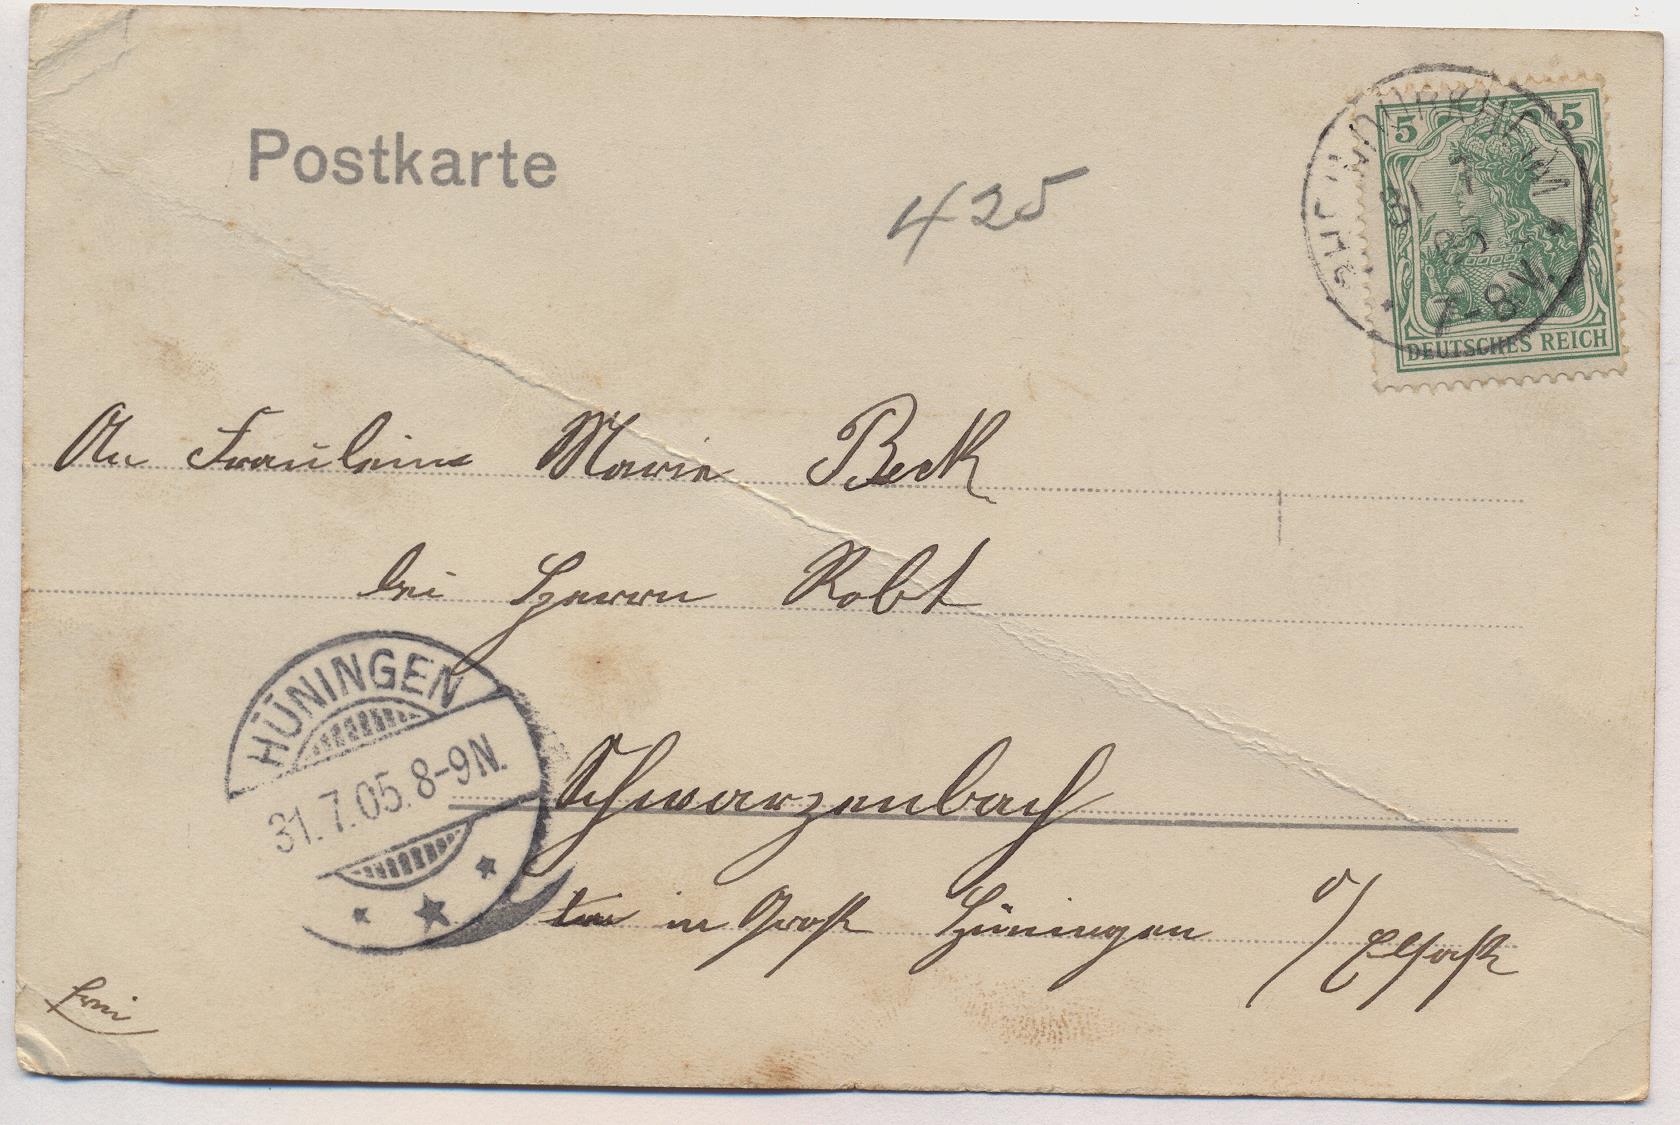 Postkarte
425
5 5
31 7 05
7-8V.
DEUTSCHES REICH
An Fräulein Marie Beck
bei Herrn Robt
HÜNINGEN
31.7.05. 8-9N.
Schwarzenbach
in Groß Hüningen o/ Elsaß